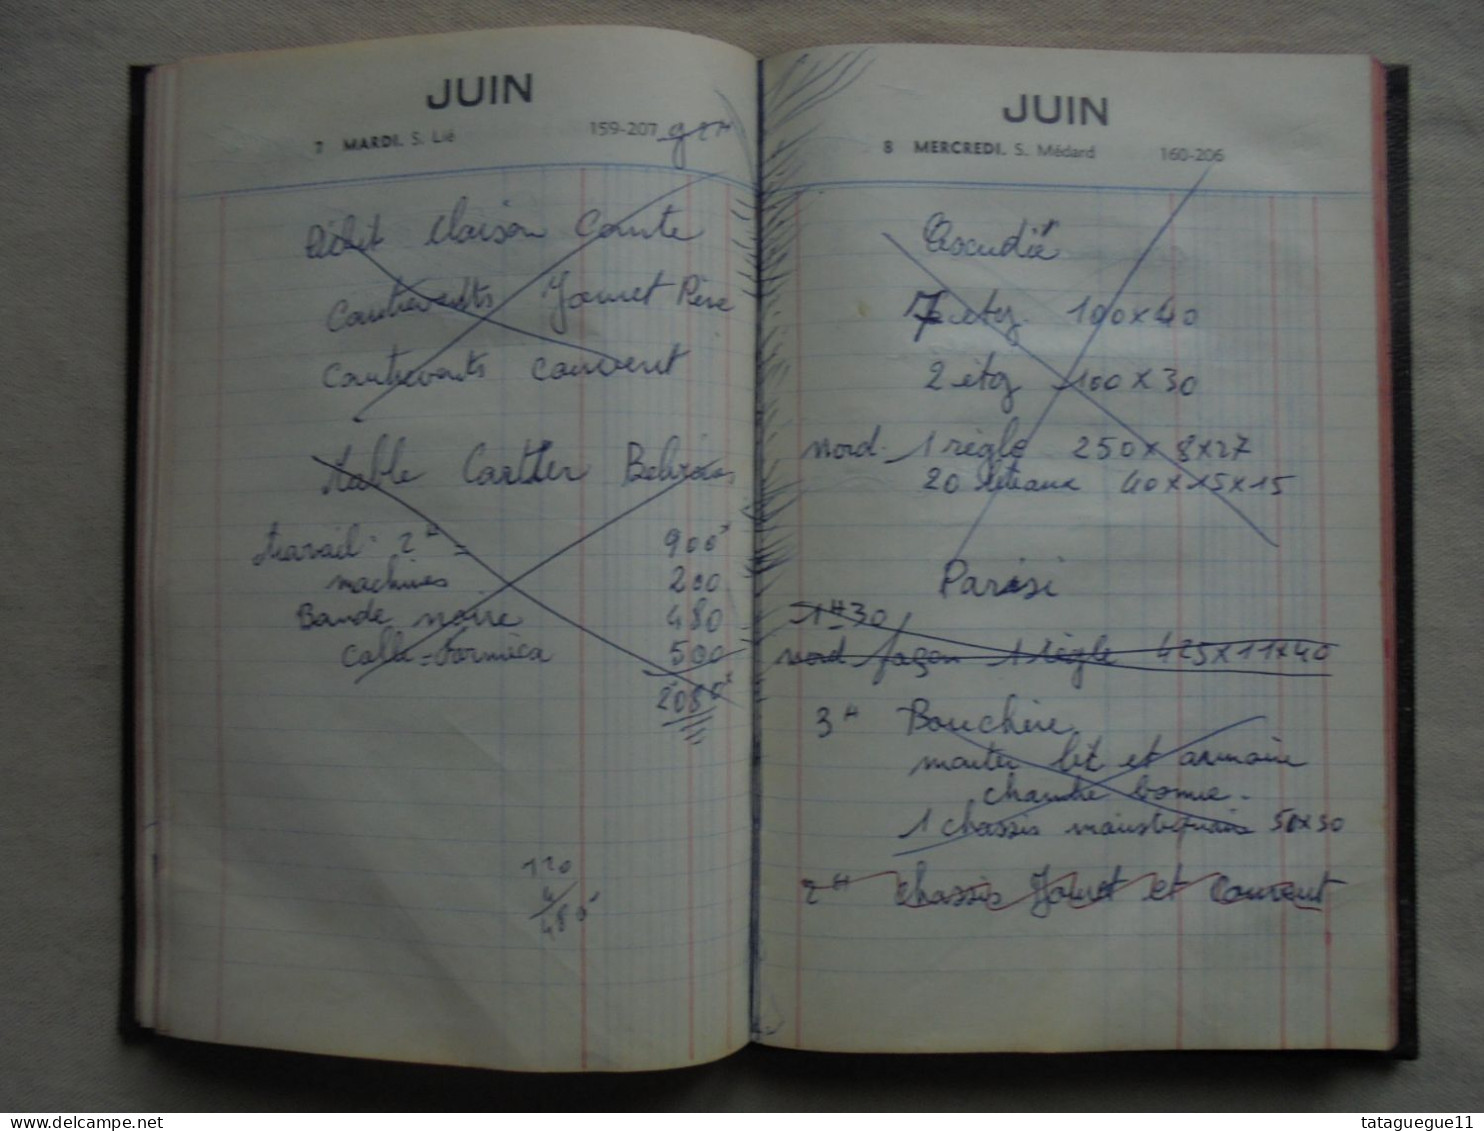 JUIN
7 MARDI. S. Lié 159-207
cloison Comte
Contrevents Jouret Père
Contrevents Couvent
table Cartier
travail 2H = 900
machines 200
Bande noire 480
Colle = Formica 500
2080
120
4
480
JUIN
8 MERCREDI. S. Médard 160-206
Escudié
7 etg 100 x 40
2 etg 100 x 30
nord. 1 règle 250 x 8 x 27
20 liteaux 40 x 15 x 15
Parisi
1H30
nord façon 1 règle 425 x 11 x 40
3H Bouchère
monter lit et armoire
chambre bonne.
1 chassis moustiquaire 50 x 50
2H chassis Jouret et Couvent
tatagueguе11